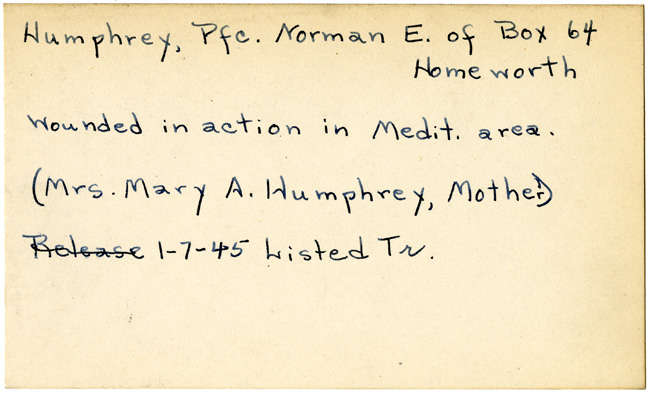 Humphrey, Pfc. Norman E. of Box 64
Homeworth
Wounded in action in Medit. area.
(Mrs. Mary A. Humphrey, Mother)
Release 1-7-45 Listed Tr.